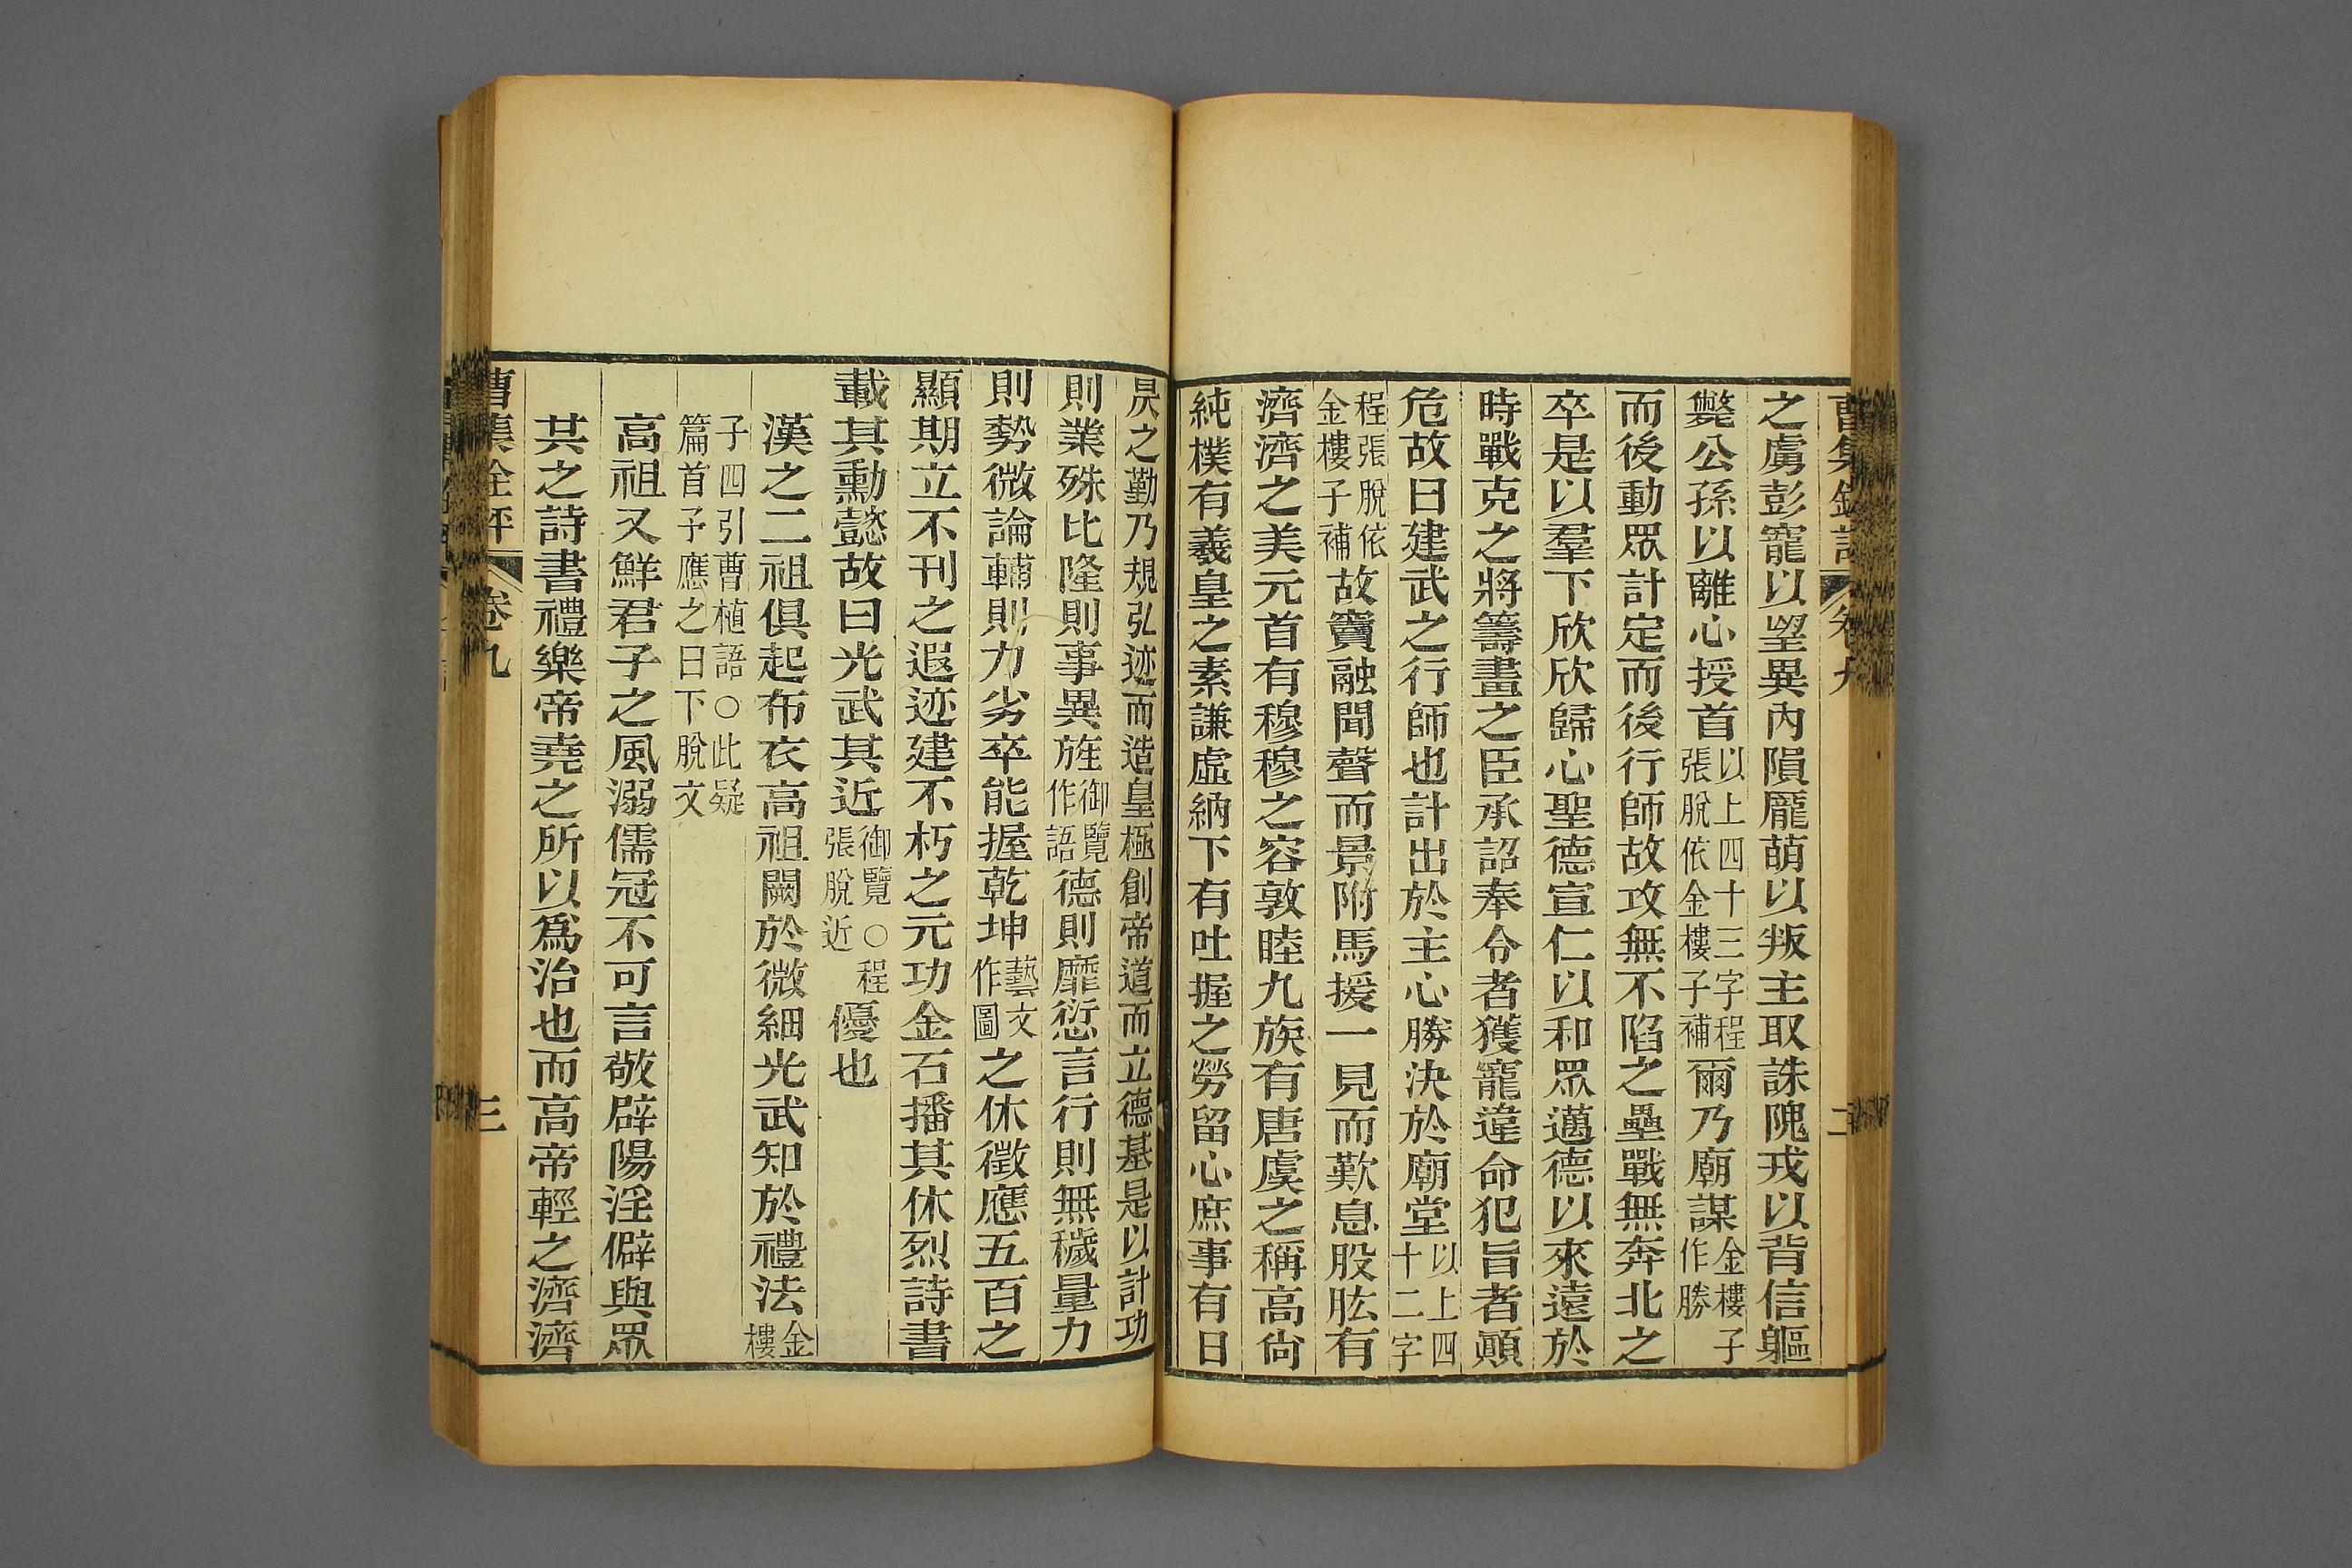 曹集銓評 卷九 二
之虜彭寵以望異內隕龐萌以叛主取誅隗戎以背信軀
斃公孫以離心授首以上四十三字程張脫依金樓子補爾乃廟謀金樓子作勝
而後動眾計定而後行師故攻無不陷之壘戰無奔北之
卒是以羣下欣欣歸心聖德宣仁以和眾邁德以來遠於
時戰克之將籌畫之臣承詔奉令者獲寵違命犯旨者顚
危故曰建武之行師也計出於主心勝決於廟堂以上四十二字
程張脫依金樓子補故竇融聞聲而景附馬援一見而歎息股肱有
濟濟之美元首有穆穆之容敦睦九族有唐虞之稱高尙
純樸有羲皇之素謙虛納下有吐握之勞留心庶事有日
昃之勤乃規弘迹而造皇極創帝道而立德基是以計功
則業殊比隆則事異旌御覽作語德則靡愆言行則無穢量力
則勢微論輔則力劣卒能握乾坤藝文作圖之休徵應五百之
顯期立不刊之遐迹建不朽之元功金石播其休烈詩書
載其勳懿故曰光武其近御覽○程張脫近優也
漢之二祖俱起布衣高祖闕於微細光武知於禮法金樓
子四引曹植語○此疑篇首子應之曰下脫文
高祖又鮮君子之風溺儒冠不可言敬辟陽淫僻與眾
共之詩書禮樂帝堯之所以爲治也而高帝輕之濟濟
曹集銓評 卷九 三